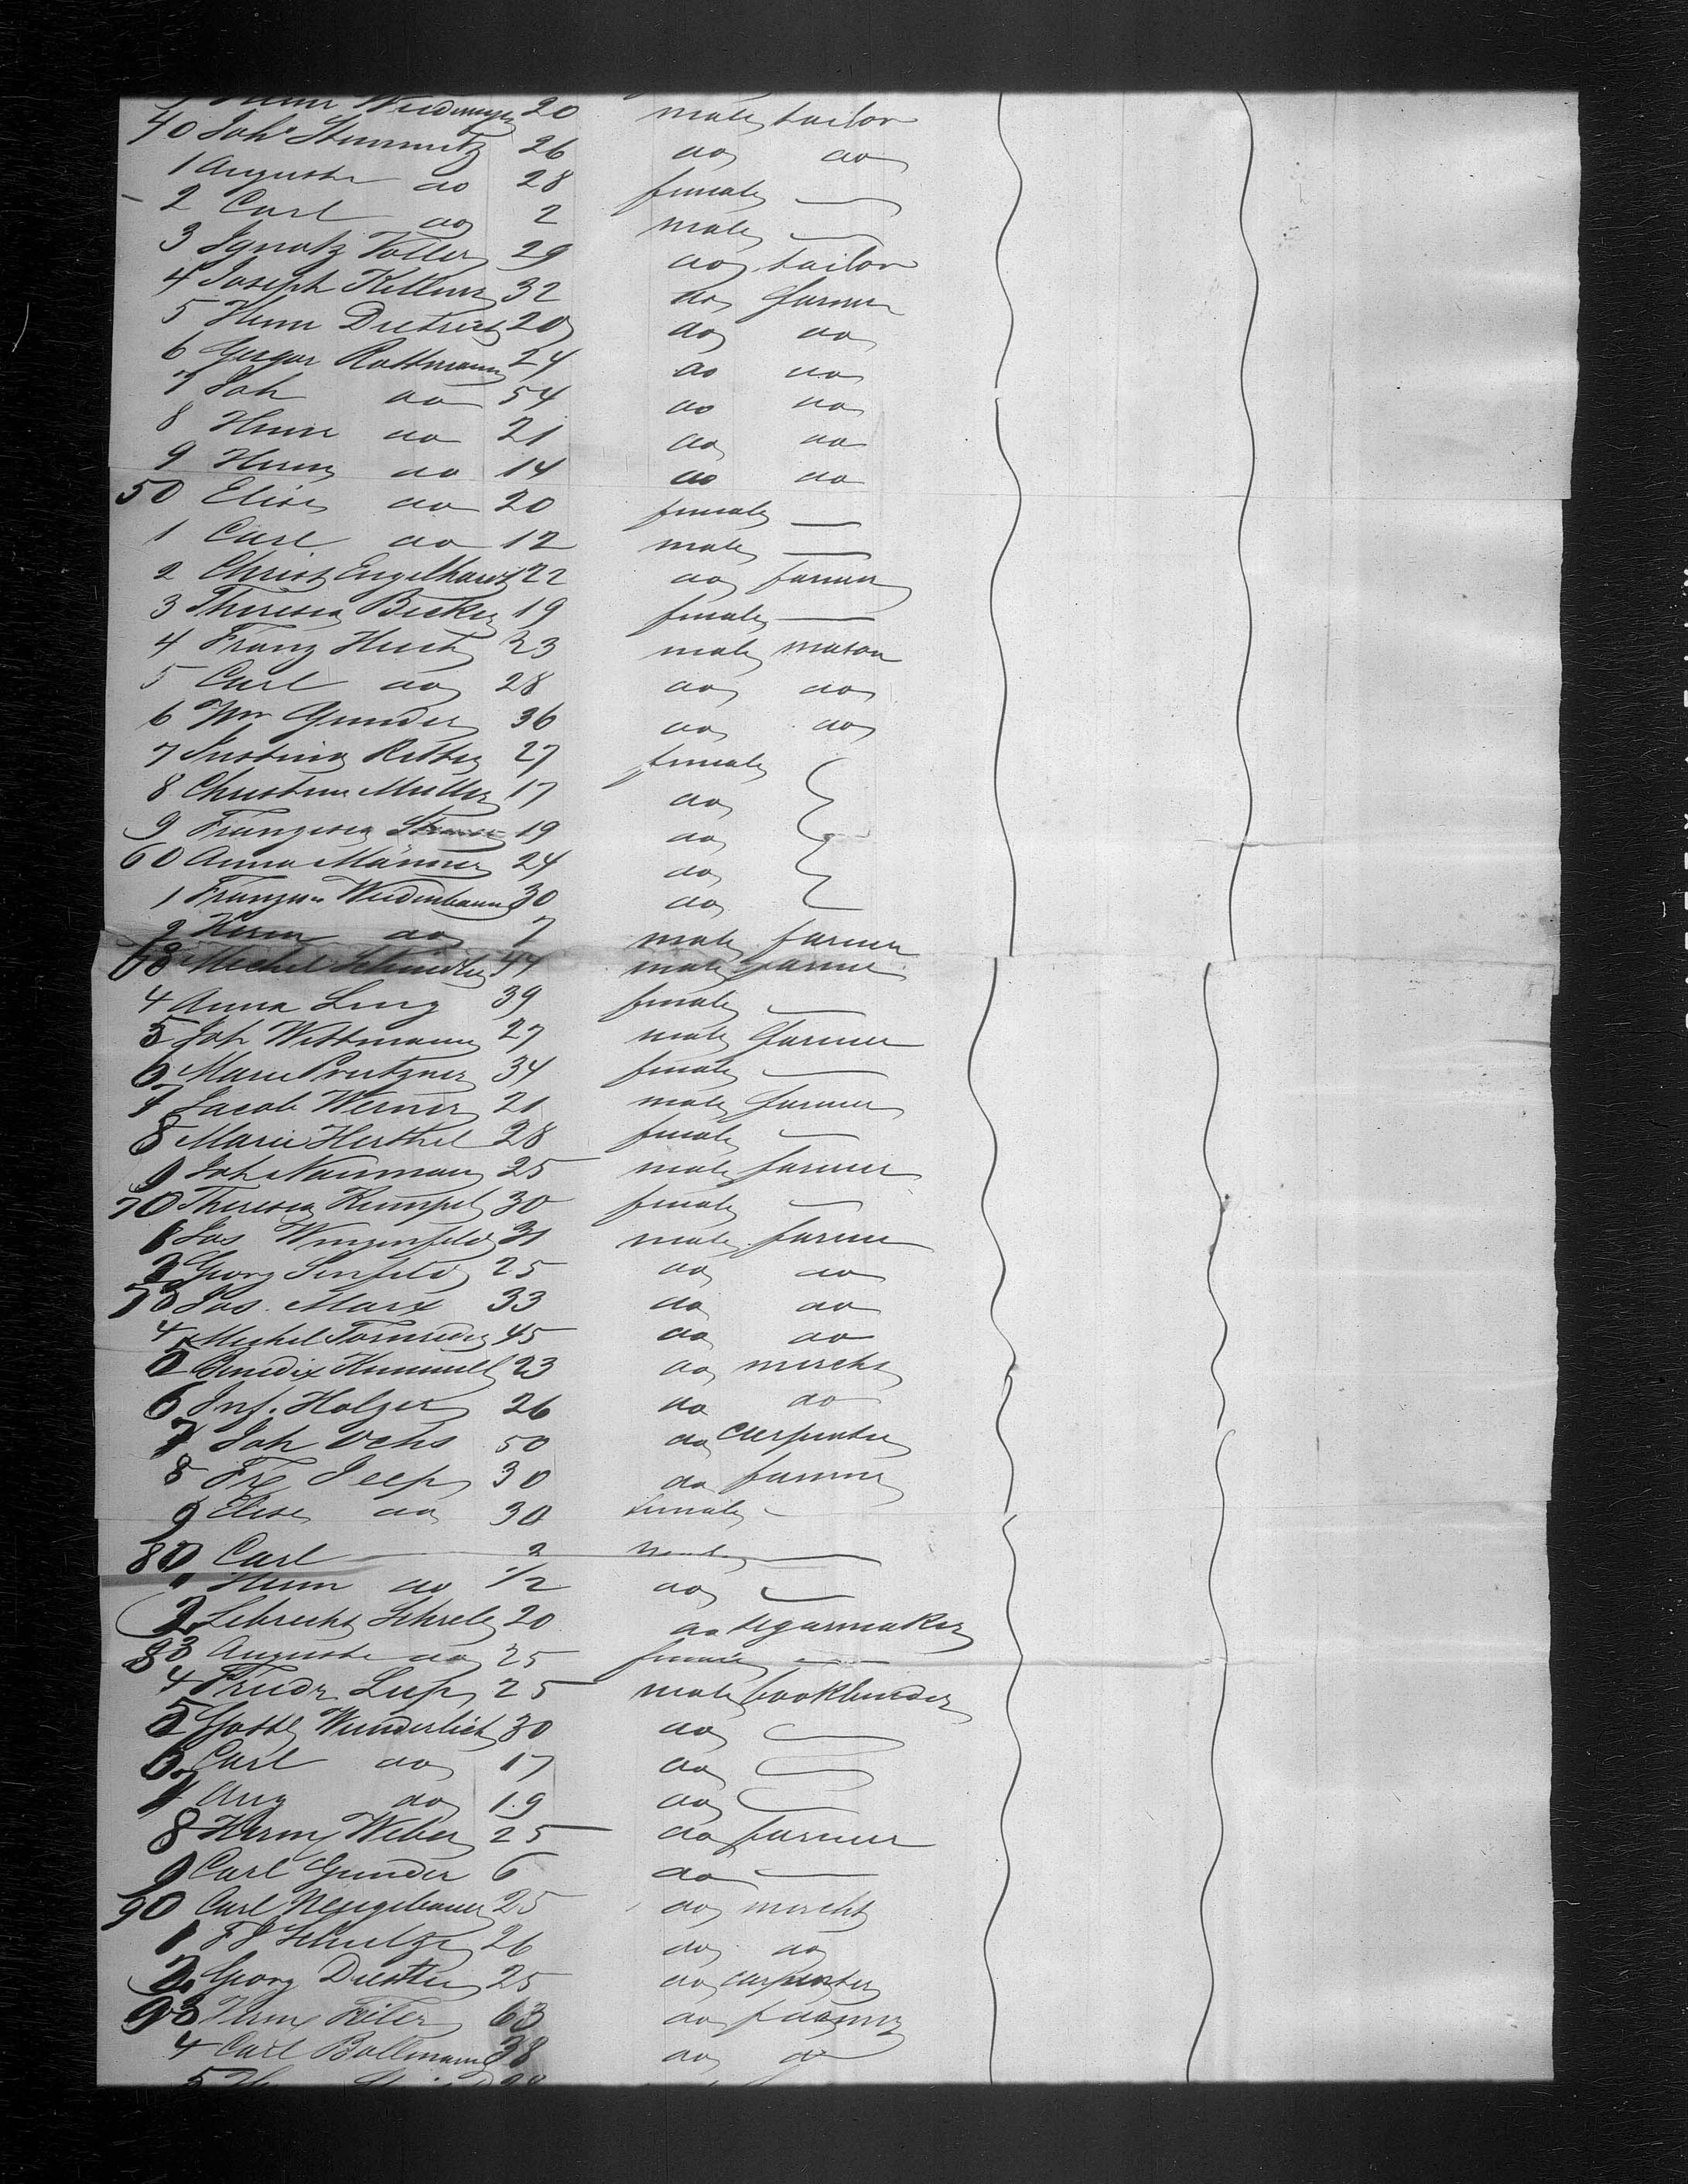 20 male tailor
40 Joh Stummitz 26 do do
1 Auguste do 28 female —
2 Carl do 2 male —
3 Ignatz Voller 29 do tailor
4 Joseph Killmer 32 do farmer
5 Herm Dietrich 20 do do
6 Gregor Rottmann 24 do do
7 Joh do 54 do do
8 Herm do 21 do do
9 do 14 do do
50 Elise do 20 female —
1 Carl do 12 male —
2 Christ Engelhardt 22 do farmer
3 Theresia Becker 19 female —
4 Franz Huch 23 male mason
5 Carl do 28 do do
6 Wm Gunder 36 do do
7 Justina Ritter 27 female
8 Christine Muller 17 do
9 Franzisca 19 do
60 Anna Männer 24 do
1 Weidenbaum 30 do
2 Herm do 7 male farmer
63 Michel Schneider 44 male farmer
4 Anna Ling 39 female —
5 Joh Wittmann 27 male farmer
6 Marie Prutzner 34 female —
7 Jacob Werner 21 male farmer
8 Marie Herthel 28 female —
9 Joh Naumann 25 male farmer
70 Theresia Kumpel 30 female —
1 Jos Wingenfeld 31 male farmer
2 Georg Sinfeld 25 do do
73 Jos. Marx 33 do do
4 Michel 45 do do
5 Benedix Hummell 23 do mercht
6 Inf. Holzer 26 do do
7 Joh Ochs 50 do carpenter
8 Fr Jeep 30 do farmer
9 Elise do 30 female -
80 Carl — 2 male —
1 Herm do 1/2 do —
2 Lebrecht 20 do segarmaker
83 Auguste do 25 female —
4 Friedr Lup 25 male bookbinder
5 Gottl Wunderlich 30 do
6 Carl do 17 do
7 Aug do 19 do
8 Herm Weber 25 do farmer
9 Carl Gunder 6 do —
90 Carl Neugebauer 25 do mercht
1 F J Schultze 26 do do
2 Georg 25 do carpenter
93 63 do farmer
4 Carl Bollmann 38 do do
5